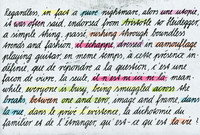 Regardless, in fact a pure nightmare, alors une utopie,
it was often said, endorsed from Aristotle to Heidegger,
a simple thing, passé rushing through boundless
trends and fashion il échappe, dressed in camouflage
playing guitar on mars temps, a cette présence in
défense, que de répondre à la question, c'est une
façon de vivre, la seule, il n'est ni ici ni là, mean-
while, everyone is busy, being smuggled across the
breaks, between one and zero, image and frame, dans
la rue, dans le privé l'existence, la dichotomie du
familier et de l'étranger, qu'est-ce qu'est la vie?